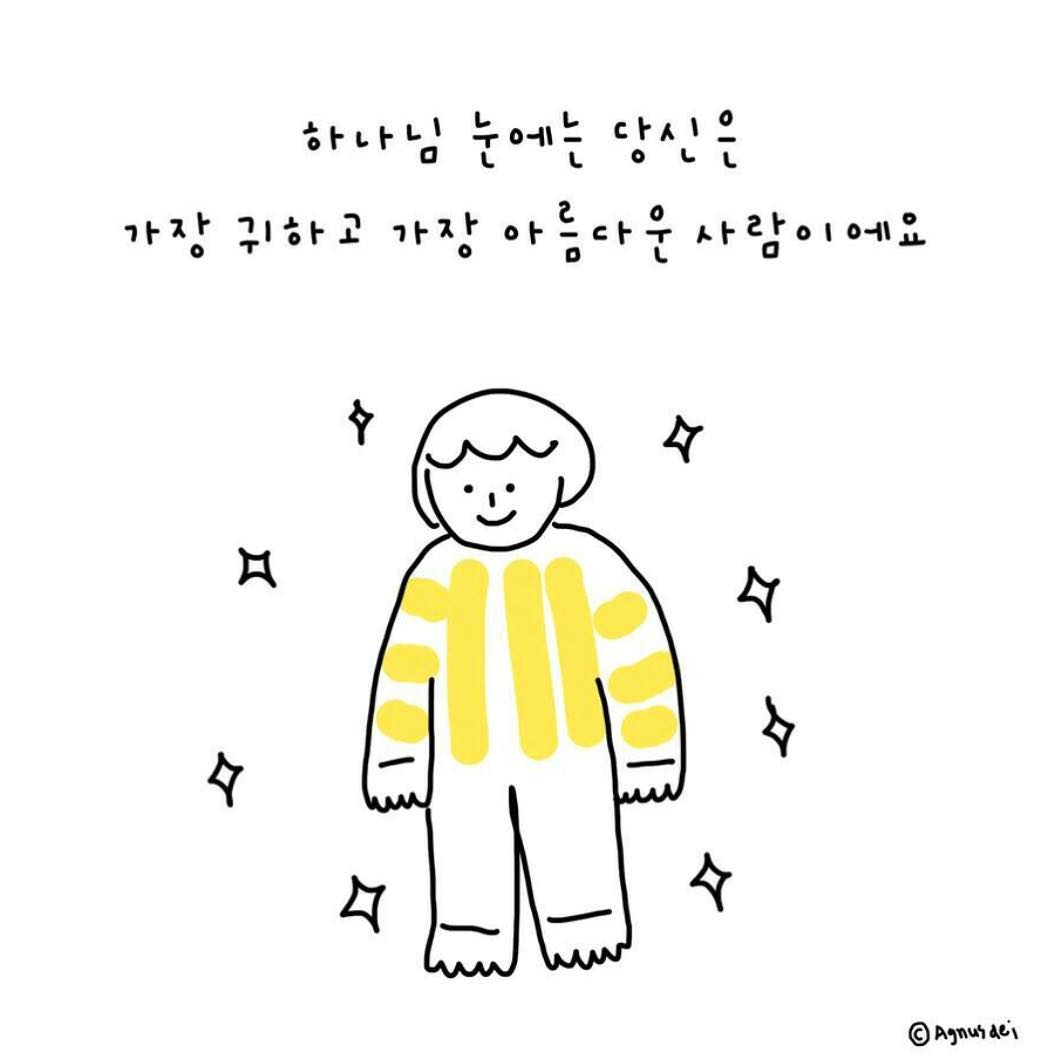 하나님 눈에는 당신은
가장 귀하고 가장 아름다운 사람이에요
© Agnus dei